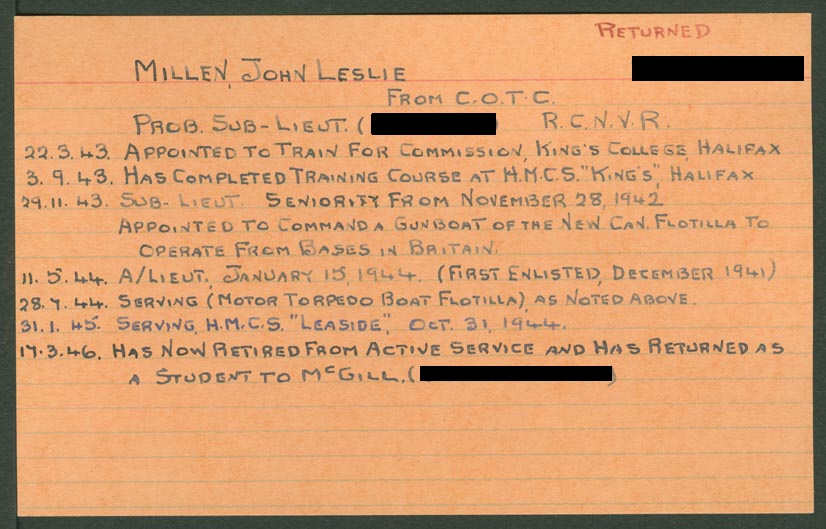 RETURNED
MILLEN, JOHN LESLIE
FROM C.O.T.C.
PROB. SUB-LIEUT. ( ) R.C.N.V.R.
22.3.43. APPOINTED TO TRAIN FOR COMMISSION, KING'S COLLEGE, HALIFAX
3.9.43. HAS COMPLETED TRAINING COURSE AT H.M.C.S. "KING'S", HALIFAX
29.11.43. SUB-LIEUT. SENIORITY FROM NOVEMBER 28, 1942
APPOINTED TO COMMAND A GUNBOAT OF THE NEW CAN. FLOTILLA TO
OPERATE FROM BASES IN BRITAIN.
11.5.44. A/LIEUT., JANUARY 15, 1944. (FIRST ENLISTED, DECEMBER 1941)
28.7.44. SERVING (MOTOR TORPEDO BOAT FLOTILLA), AS NOTED ABOVE.
31.1.45. SERVING, H.M.C.S. "LEASIDE", OCT. 31, 1944.
17.3.46. HAS NOW RETIRED FROM ACTIVE SERVICE AND HAS RETURNED AS
A STUDENT TO McGILL. ( )